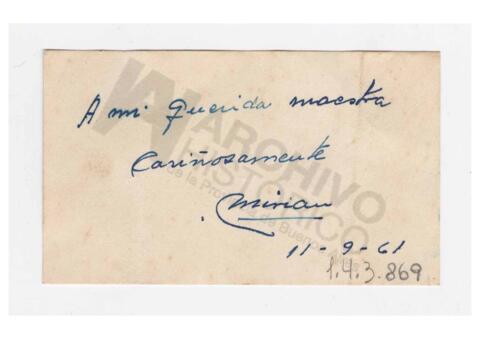 A mi Querida maestra
Cariñosamente
Mirian
11-9-61
1.4.3.869
ARCHIVO
HISTÓRICO
de la Provincia de Buenos Aires